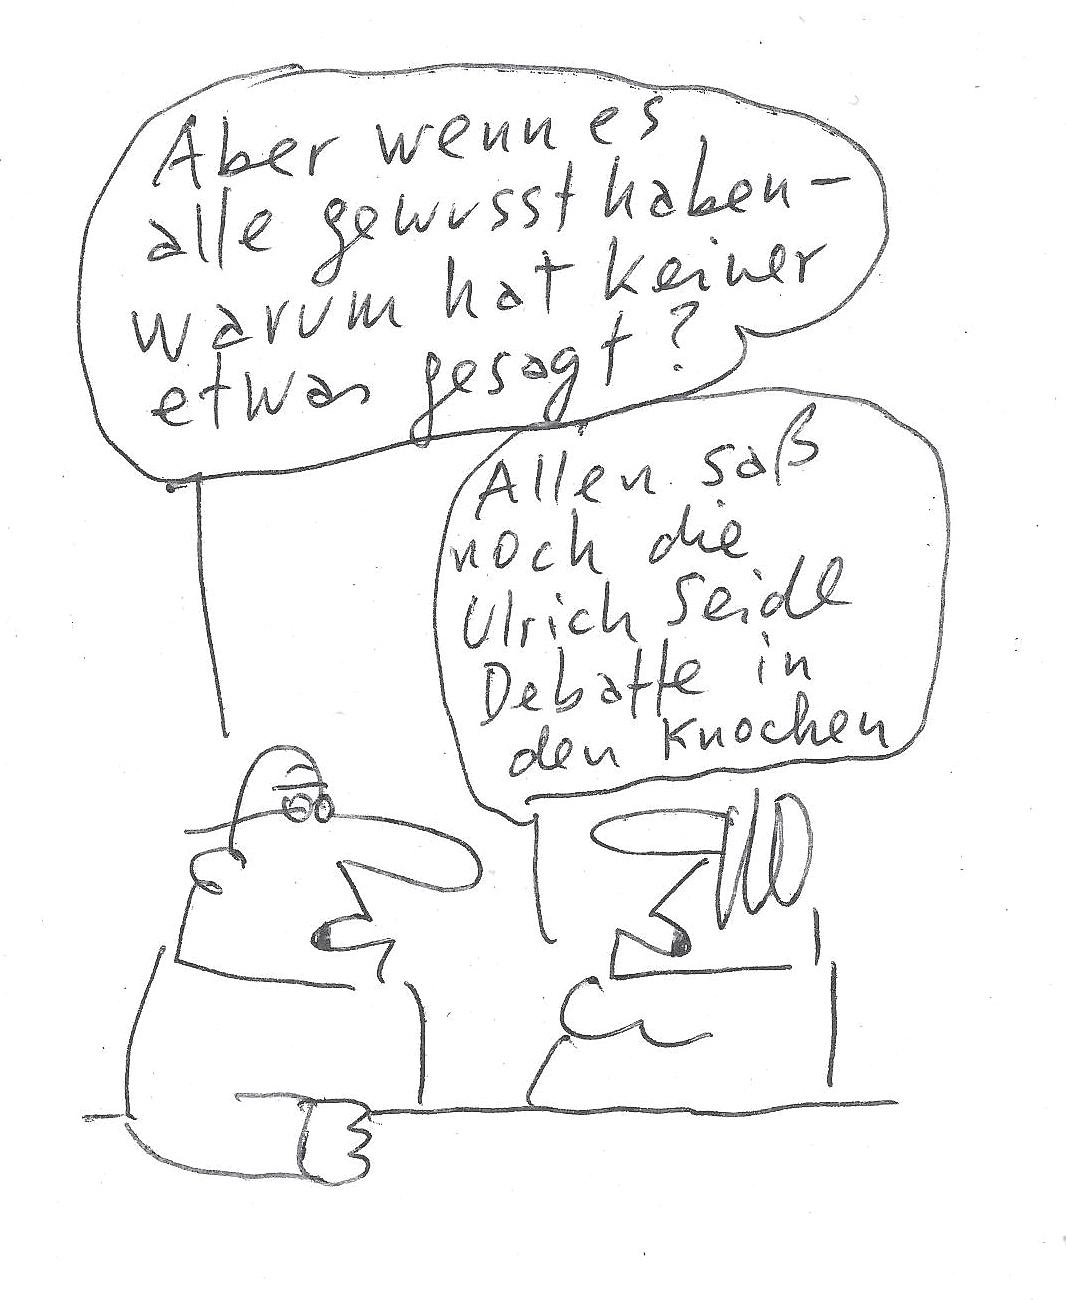 Aber wenn es
alle gewusst haben -
warum hat keiner
etwas gesagt?
Allen saß
noch die
Ulrich Seidl
Debatte in
den Knochen